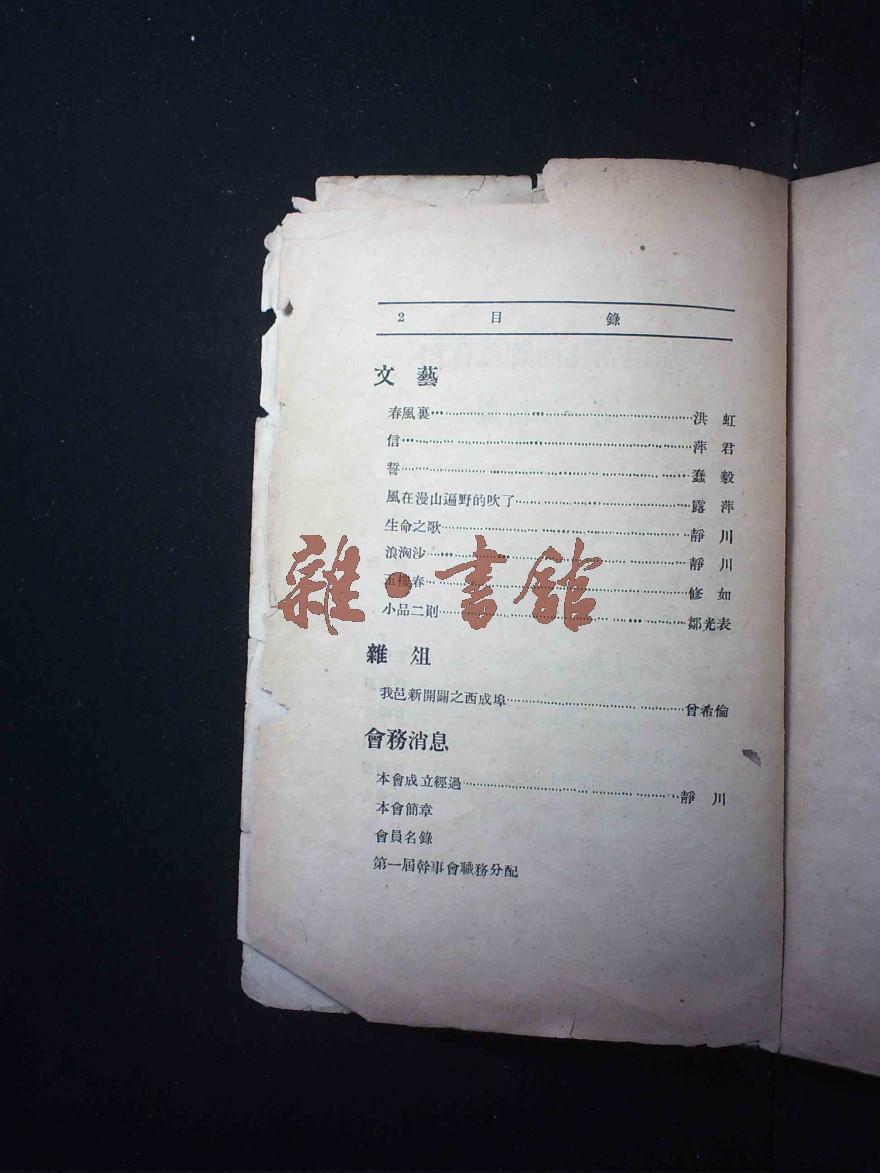 2 目 錄
文 藝
春風裏……洪 虹
信……萍 君
誓……蠢 毅
風在漫山遍野的吹了……露 萍
生命之歌……靜 川
浪淘沙……靜 川
玉樓春……修 如
小品二則……鄒光表
雜 俎
我邑新開闢之西成埠……曾希倫
會務消息
本會成立經過……靜 川
本會簡章
會員名錄
第一屆幹事會職務分配
雜·書館